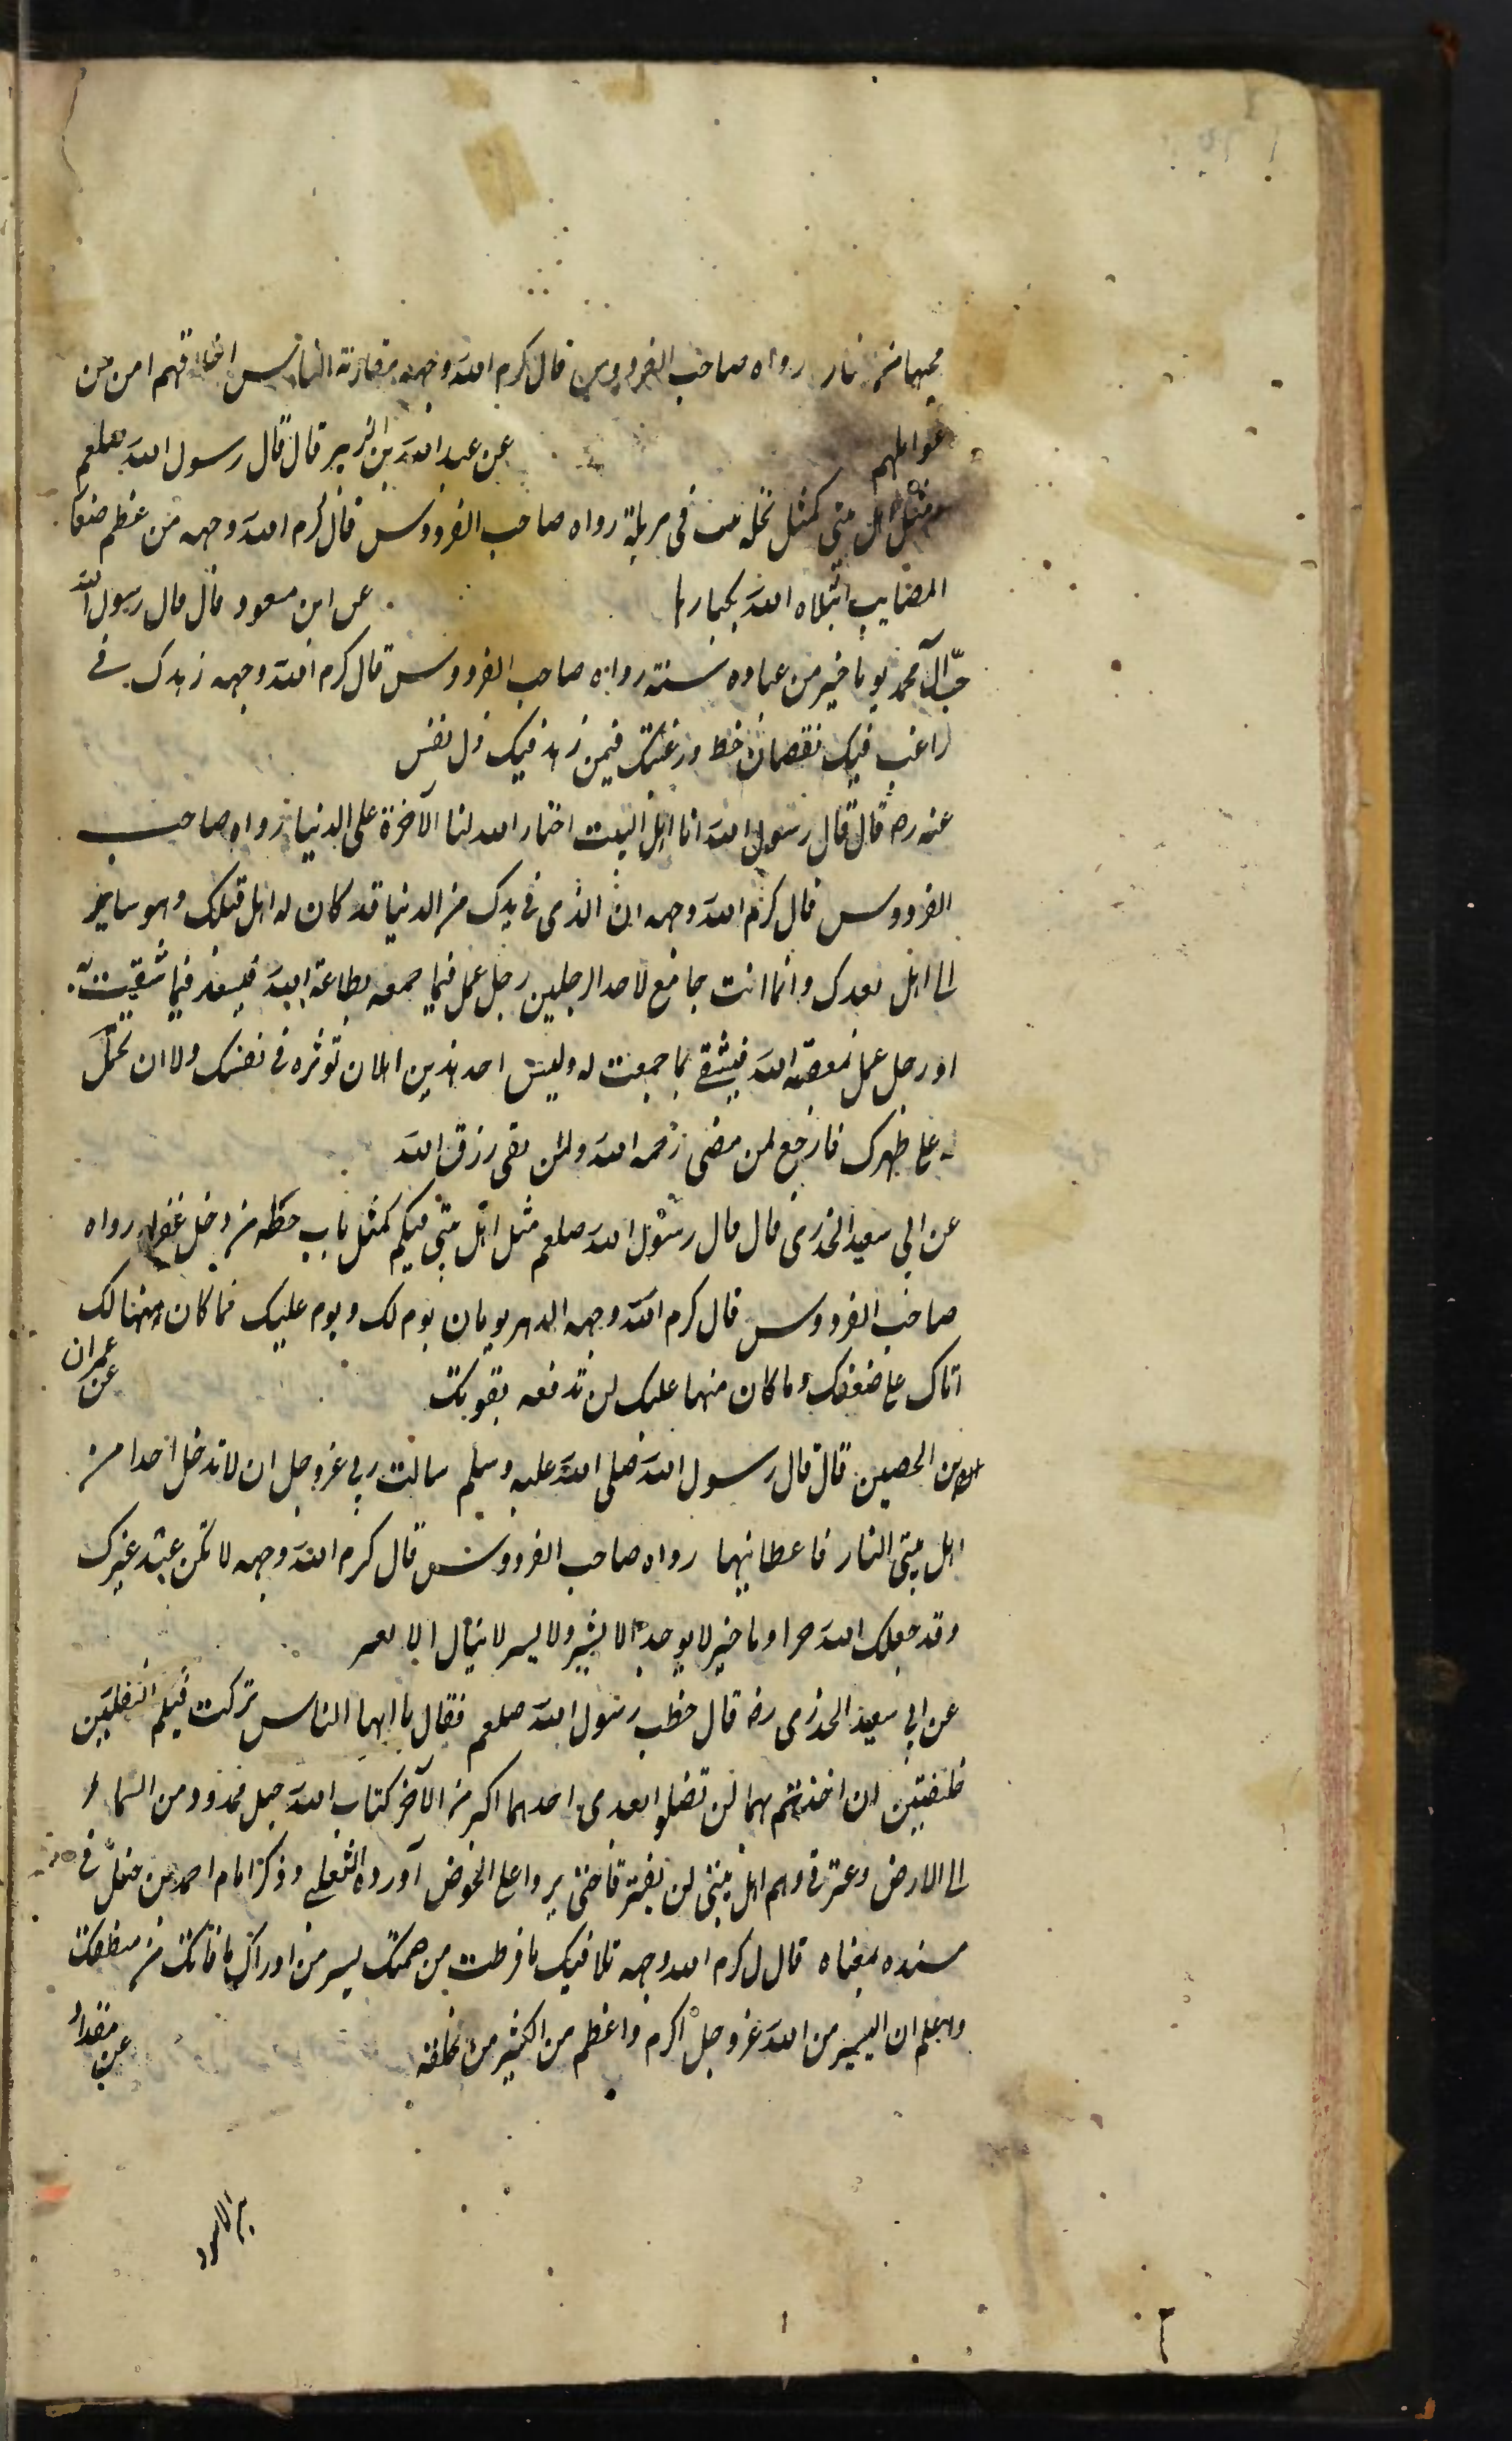 محبهما من نار رواه صاحب الفردوس قال كرم الله وجهه مقارنة الناس اخلاقهم امن من
غوايلهم عن عبد الله بن الزبير قال قال رسول الله صلعم
مثل اهل بيتى كمثل نخلة فى مزبلة رواه صاحب الفردوس قال كرم الله وجهه من عظم صغار
المصايب ابتلاه الله بكبارها عن ابن مسعود قال قال رسول الله
حبّ آل محمد يوما خير من عباده سنة رواه صاحب الفردوس قال كرم الله وجهه زهدك فى
راغب فيك نقصان حظ ورغبتك فيمن زهد فيك ذل نفس
عنه رض قال قال رسول الله انا اهل البيت اختار الله لنا الآخرة على الدنيا رواه صاحب
الفردوس قال كرم الله وجهه ان الذى فى يدك من الدنيا قد كان له اهل قبلك وهو ساير
الى اهل بعدك وانما انت جامع لاحد الرجلين رجل عمل فيما جمعه بطاعة الله فيسعد فيما شقيت به
او رجل عمل بمعصية الله فيشقى بما جمعت له وليس احد هذين اهلا ان توثره فى نفسك ولا ان تحمل
له على ظهرك فارجع لمن مضى رحمه الله ولمن بقى رزق الله
عن ابى سعيد الخدرى قال قال رسول الله صلعم مثل اهل بيتى فيكم كمثل باب حطه من دخل غفر له رواه
صاحب الفردوس قال كرم الله وجهه الدهر يومان يوم لك ويوم عليك فما كان منهما لك
اتاك على ضعفك وما كان منهما عليك لن تدفعه بقوتك عن عمران
بن الحصين قال قال رسول الله صلى الله عليه وسلم سالت ربى عز وجل ان لا تدخل احدا من
اهل بيتى النار فاعطانيها رواه صاحب الفردوس قال كرم الله وجهه لا تكن عبد غيرك
وقد جعلك الله حرا وما خير لا يوجد الا بشر ولا يسر لا ينال الا بعسر
عن ابى سعيد الخدرى رض قال خطب رسول الله صلعم فقال يا ايها الناس تركت فيكم الثقلين
خليفتين ان اخذتم بهما لن تضلوا بعدى احدهما اكبر من الآخر كتاب الله حبل ممدود من السماء
الى الارض وعترتى وهم اهل بيتى لن يفترقا حتى يردا على الحوض آورده الثعلبى وذكر امام احمد بن حنبل فى
مسنده بمعناه قال كرم الله وجهه تلافيك ما فرطت من همتك ايسر من ادراك ما فاتك من منطقك
واعلم ان اليسير من الله عز وجل اكرم واعظم من الكثير من خلقه عن مقداد
بن الاسود